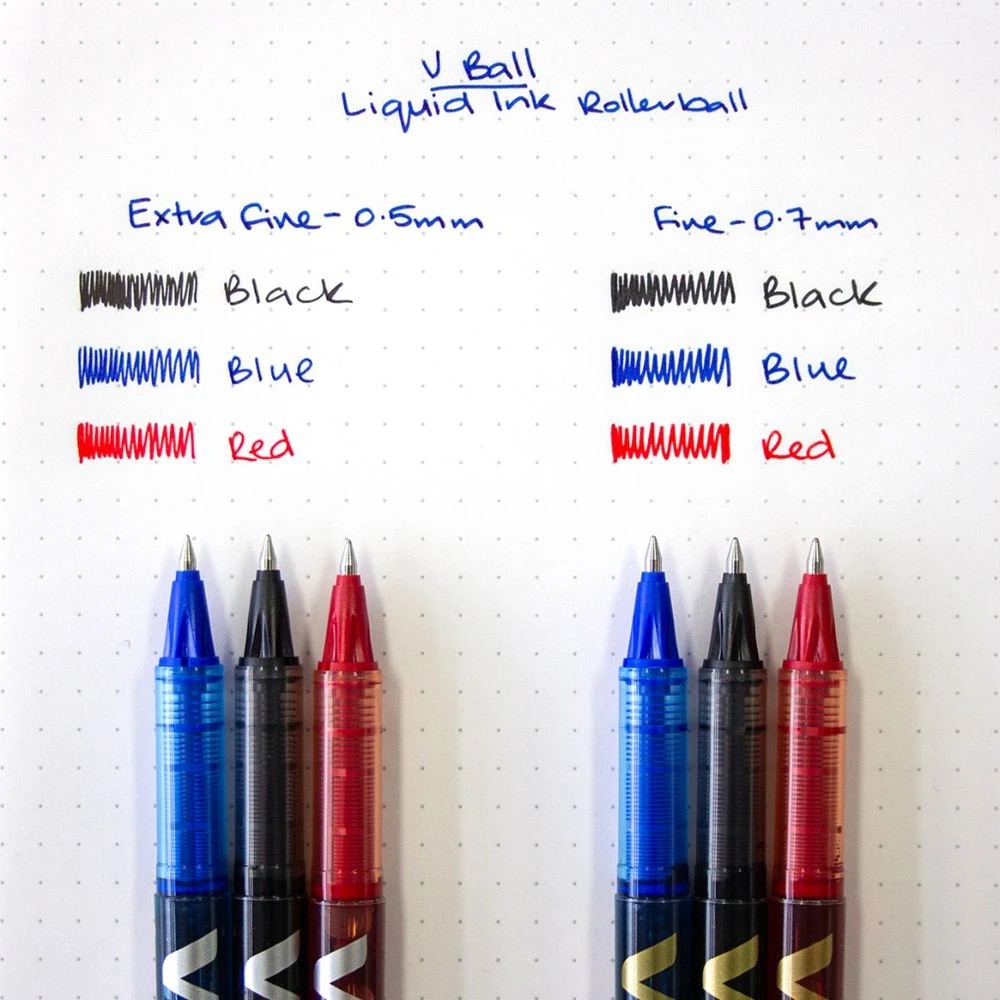 V Ball
Liquid Ink Rollerball
Extra Fine - 0.5mm
Black
Blue
Red
Fine - 0.7mm
Black
Blue
Red
V
V
V
V
V
V